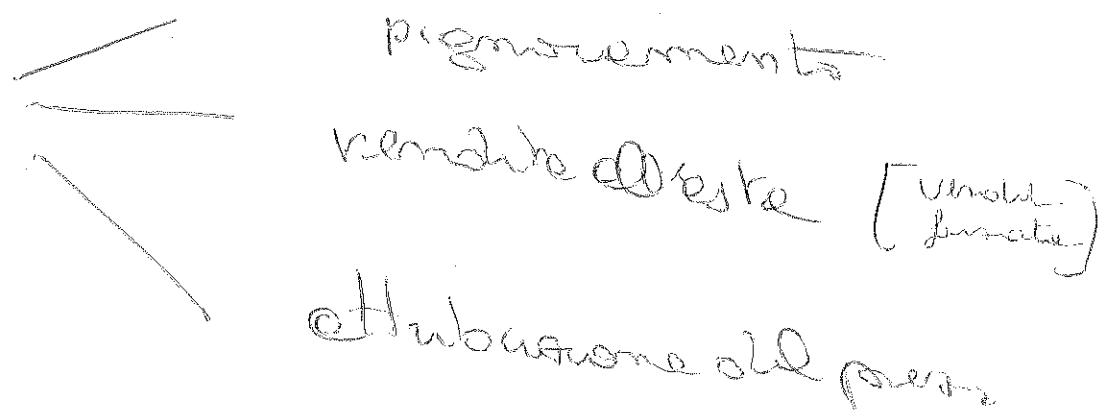 pignoramento
vendita all'asta [vendita
forzata]
attribuzione del prezzo